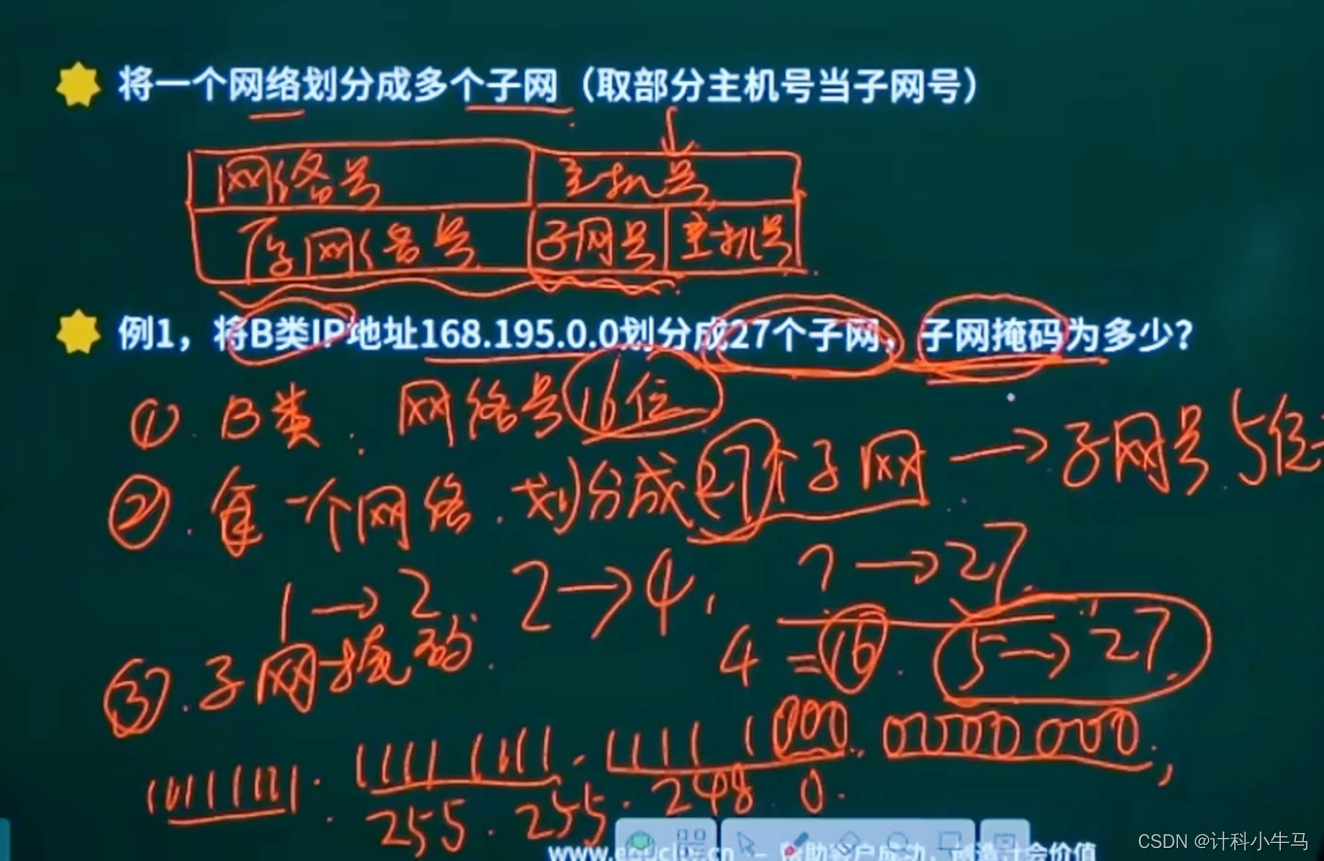 将一个网络划分成多个子网（取部分主机号当子网号）
网络号 主机号
网络号 子网号 主机号
例1，将B类IP地址168.195.0.0划分成27个子网，子网掩码为多少？
① B类. 网络号16位
②. 一个网络.划分成27个子网 → 子网号5位
1→2 2→4, ?→27
4=16. 5→27
③.子网掩码.
11111111.11111111.11111000.00000000,
255.255.248.0.
www.educity.cn – 帮助客户成功，创造社会价值
CSDN @计科小牛马